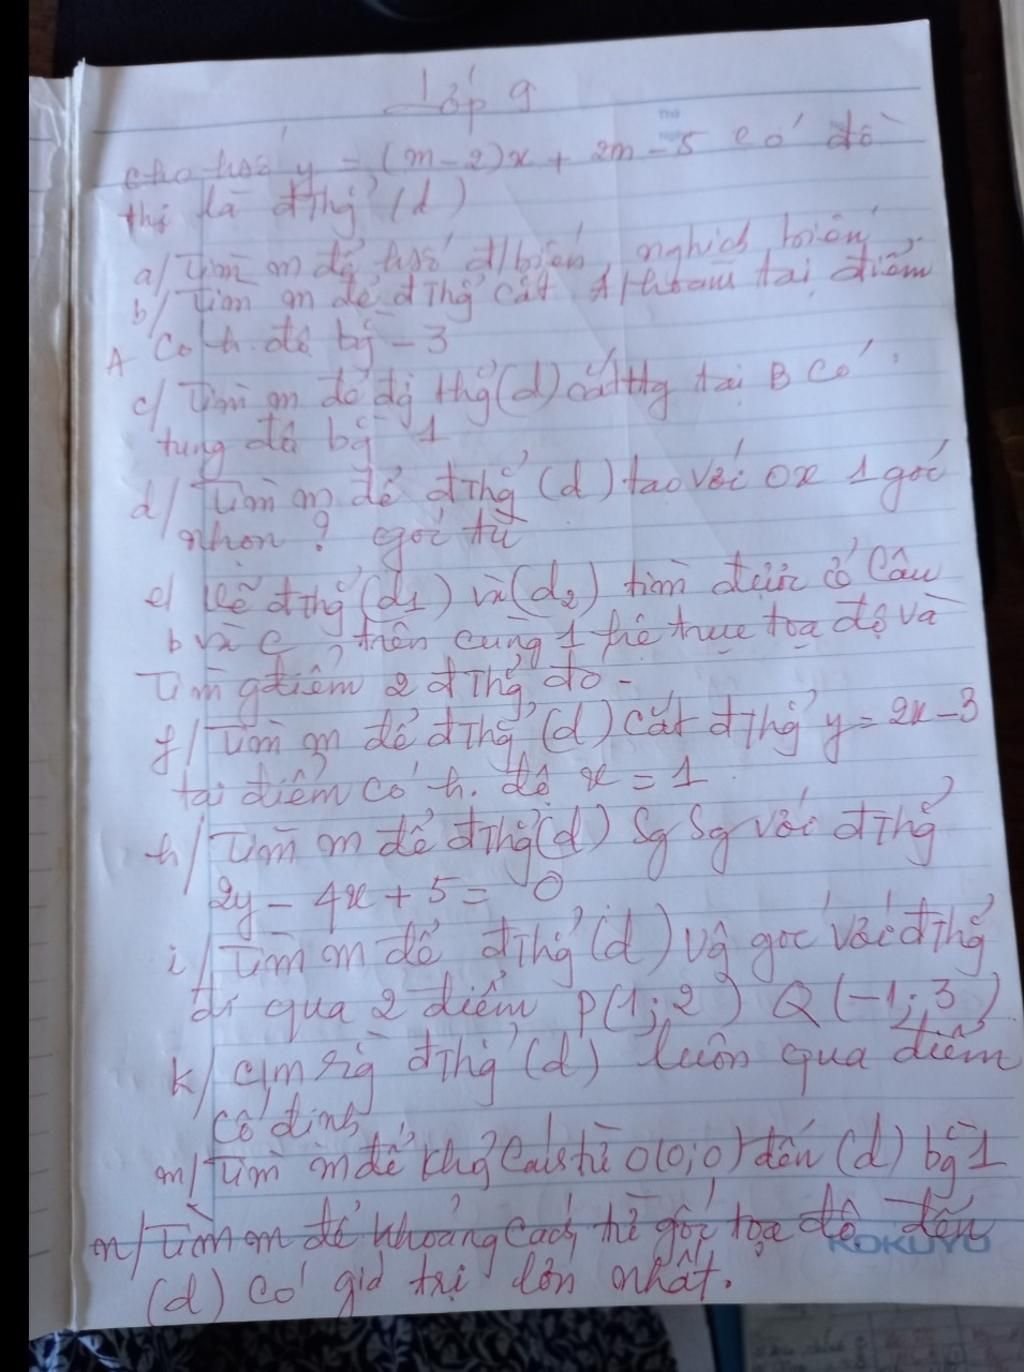 Lớp 9
cho hsố y = (m - 2)x + 2m - 5 có đồ
thị là đThg (d)
a/ Tìm m để hsố đ/biến, nghịch biến
b/ Tìm m để đThg cắt t/hoành tại điểm
A có h. độ bg - 3
c/ Tìm m để thg (d) cắt tại B có
tung độ bg 1
d/ Tìm m để đThg (d) tạo với ox 1 góc
nhọn ? góc tù
e/ vẽ đThg (d1) và (d2) tìm được ở câu
b và c trên cùng 1 hệ trục tọa độ và
Tìm gđiểm 2 đThg đó -
f/ Tìm m để đThg (d) cắt đThg y = 2x - 3
tại điểm có h. độ x = 1.
h/ Tìm m để đThg (d) Sg Sg với đThg
2y - 4x + 5 = 0
i/ Tìm m để đThg (d) Vg góc với đThg
đi qua 2 điểm P(1; 2) Q(-1; 3)
k/ C/m rg đThg (d) luôn qua điểm
cố định
m/ Tìm m để khg cách từ O(0; 0) đến (d) bg 1
n/ Tìm m để khoảng cách từ gốc tọa độ đến
KOKUYO
(d) có giá trị lớn nhất.